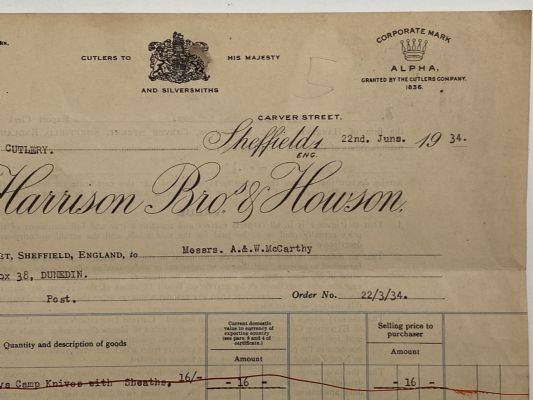 CUTLERS TO HIS MAJESTY
AND SILVERSMITHS
CORPORATE MARK
ALPHA.
GRANTED BY THE CUTLERS COMPANY.
1836.
5
CARVER STREET.
CUTLERY. Sheffield, 22nd. June. 1934.
ENG.
Harrison Bros & Howson.
SHEFFIELD, ENGLAND, to Messrs. A.&.W.McCarthy
ox 38, DUNEDIN.
Post. Order No. 22/3/34.
Quantity and description of goods
Current domestic
value in currency of
exporting country
(see para. 3 and 4 of
certificate.)
Amount
Selling price to
purchaser
Amount
Camp Knives with Sheaths, 16/- - 16 - - 16 -